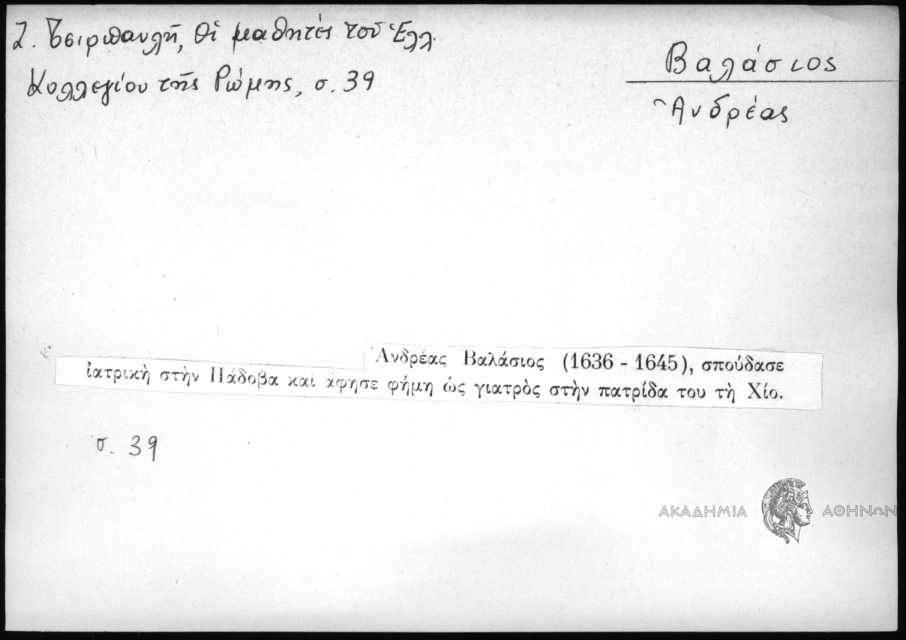 Ζ. Τσιρπανλῆ, Οἱ μαθητές τοῦ Ἑλλ.
Κολλεγίου τῆς Ρώμης, σ. 39
Βαλάσιος
Ἀνδρέας
Ἀνδρέας Βαλάσιος (1636 - 1645), σπούδασε
ἰατρικὴ στὴν Πάδοβα καὶ ἄφησε φήμη ὡς γιατρὸς στὴν πατρίδα του τὴ Χίο.
σ. 39
ΑΚΑΔΗΜΙΑ ΑΘΗΝΩΝ